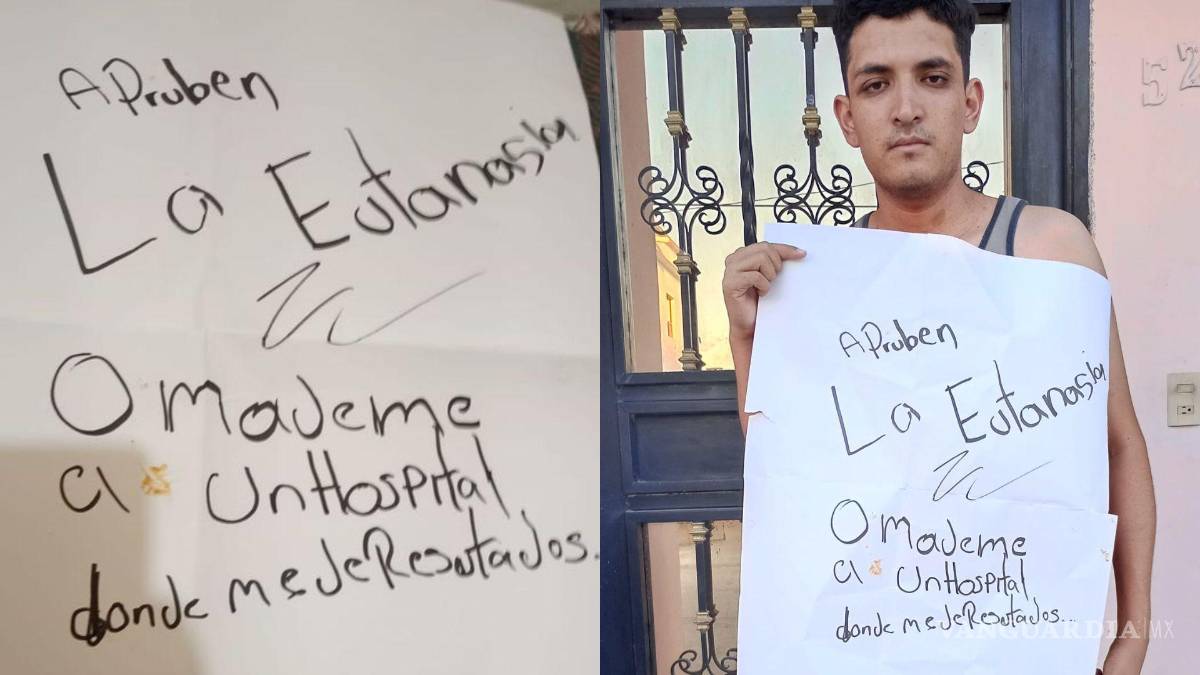 APruben
La Eutanasia
O mademe
a UnHospital
donde me de Resutados.
52
APruben
La Eutanasia
O mademe
a UnHospital
donde me de Resutados...
VANGUARDIA|MX